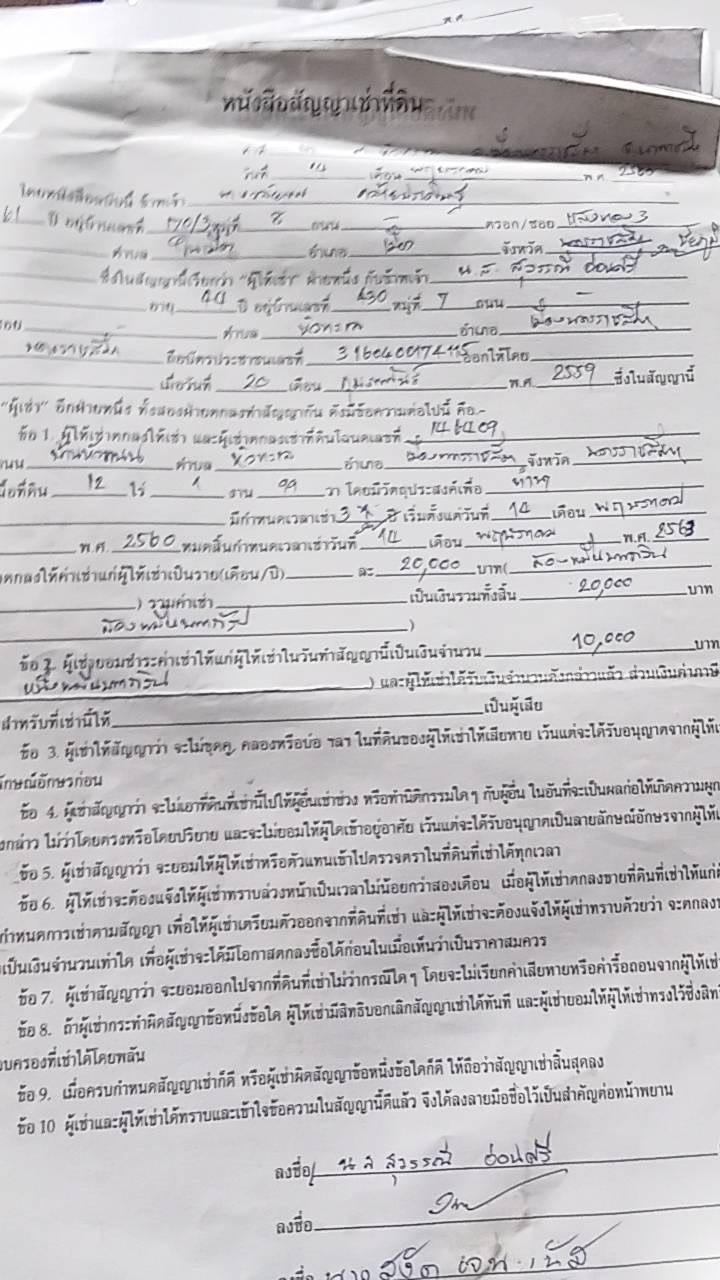 หนังสือสัญญาเช่าที่ดิน
วันที่ 14 เดือน พฤษภาคม พ.ศ. 2560
โดยหนังสือฉบับนี้ ข้าพเจ้า
61 ปี อยู่บ้านเลขที่ 170/3 หมู่ที่ 8 ถนน - ตรอก/ซอย แสงทอง 3
ตำบล ในเมือง อำเภอ เมือง จังหวัด นครราชสีมา ชัยภูมิ
ซึ่งในสัญญานี้เรียกว่า "ผู้ให้เช่า" ฝ่ายหนึ่ง กับข้าพเจ้า น.ส. สุวรรณี อ่อนศรี
อายุ 44 ปี อยู่บ้านเลขที่ 430 หมู่ที่ 7 ถนน -
ซอย ตำบล หัวทะเล อำเภอ เมืองนครราชสีมา
นครราชสีมา ถือบัตรประชาชนเลขที่ ออกให้โดย
เมื่อวันที่ 20 เดือน กุมภาพันธ์ พ.ศ. 2559 ซึ่งในสัญญานี้
"ผู้เช่า" อีกฝ่ายหนึ่ง ทั้งสองฝ่ายตกลงทำสัญญากัน ดังมีข้อความต่อไปนี้ คือ.-
ข้อ 1. ผู้ให้เช่าตกลงให้เช่า และผู้เช่าตกลงเช่าที่ดินโฉนดเลขที่ 146409
ถนน บ้านหัวถนน ตำบล หัวทะเล อำเภอ เมืองนครราชสีมา จังหวัด นครราชสีมา
เนื้อที่ดิน 12 ไร่ 1 งาน 99 วา โดยมีวัตถุประสงค์เพื่อ ทำนา
มีกำหนดเวลาเช่า 3 ปี เริ่มตั้งแต่วันที่ 14 เดือน พฤษภาคม
พ.ศ. 2560 หมดสิ้นกำหนดเวลาเช่าวันที่ 14 เดือน พฤษภาคม พ.ศ. 2563
ตกลงให้ค่าเช่าแก่ผู้ให้เช่าเป็นราย(เดือน/ปี) ละ 20,000 บาท( สองหมื่นบาทถ้วน
) รวมค่าเช่า เป็นเงินรวมทั้งสิ้น 20,000 บาท
สองหมื่นบาทถ้วน )
ข้อ 2. ผู้เช่ายอมชำระค่าเช่าให้แก่ผู้ให้เช่าในวันทำสัญญานี้เป็นเงินจำนวน 10,000 บาท
หนึ่งหมื่นบาทถ้วน ) และผู้ให้เช่าได้รับเงินจำนวนดังกล่าวแล้ว ส่วนเงินค่าภาษี
สำหรับที่เช่านี้ให้ เป็นผู้เสีย
ข้อ 3. ผู้เช่าให้สัญญาว่า จะไม่ขุดคู, คลองหรือบ่อ ฯลฯ ในที่ดินของผู้ให้เช่าให้เสียหาย เว้นแต่จะได้รับอนุญาตจากผู้ให้เ
ลักษณ์อักษรก่อน
ข้อ 4. ผู้เช่าสัญญาว่า จะไม่เอาที่ดินที่เช่านี้ไปให้ผู้อื่นเช่าช่วง หรือทำนิติกรรมใด ๆ กับผู้อื่น ในอันที่จะเป็นผลก่อให้เกิดความผูก
งกล่าว ไม่ว่าโดยตรงหรือโดยปริยาย และจะไม่ยอมให้ผู้ใดเข้าอยู่อาศัย เว้นแต่จะได้รับอนุญาตเป็นลายลักษณ์อักษรจากผู้ให้เ
ข้อ 5. ผู้เช่าสัญญาว่า จะยอมให้ผู้ให้เช่าหรือตัวแทนเข้าไปตรวจตราในที่ดินที่เช่าได้ทุกเวลา
ข้อ 6. ผู้ให้เช่าจะต้องแจ้งให้ผู้เช่าทราบล่วงหน้าเป็นเวลาไม่น้อยกว่าสองเดือน เมื่อผู้ให้เช่าตกลงขายที่ดินที่เช่าให้แก่ผ
กำหนดการเช่าตามสัญญา เพื่อให้ผู้เช่าเตรียมตัวออกจากที่ดินที่เช่า และผู้ให้เช่าจะต้องแจ้งให้ผู้เช่าทราบด้วยว่า จะตกลงข
เป็นเงินจำนวนเท่าใด เพื่อผู้เช่าจะได้มีโอกาสตกลงซื้อได้ก่อนในเมื่อเห็นว่าเป็นราคาสมควร
ข้อ 7. ผู้เช่าสัญญาว่า จะยอมออกไปจากที่ดินที่เช่าไม่ว่ากรณีใด ๆ โดยจะไม่เรียกค่าเสียหายหรือค่ารื้อถอนจากผู้ให้เช่
ข้อ 8. ถ้าผู้เช่ากระทำผิดสัญญาข้อหนึ่งข้อใด ผู้ให้เช่ามีสิทธิบอกเลิกสัญญาเช่าได้ทันที และผู้เช่ายอมให้ผู้ให้เช่าทรงไว้ซึ่งสิท
อบครองที่เช่าได้โดยพลัน
ข้อ 9. เมื่อครบกำหนดสัญญาเช่าก็ดี หรือผู้เช่าผิดสัญญาข้อหนึ่งข้อใดก็ดี ให้ถือว่าสัญญาเช่าสิ้นสุดลง
ข้อ 10 ผู้เช่าและผู้ให้เช่าได้ทราบและเข้าใจข้อความในสัญญานี้ดีแล้ว จึงได้ลงลายมือชื่อไว้เป็นสำคัญต่อหน้าพยาน
ลงชื่อ น.ส สุวรรณี อ่อนศรี
ลงชื่อ
ลงชื่อ